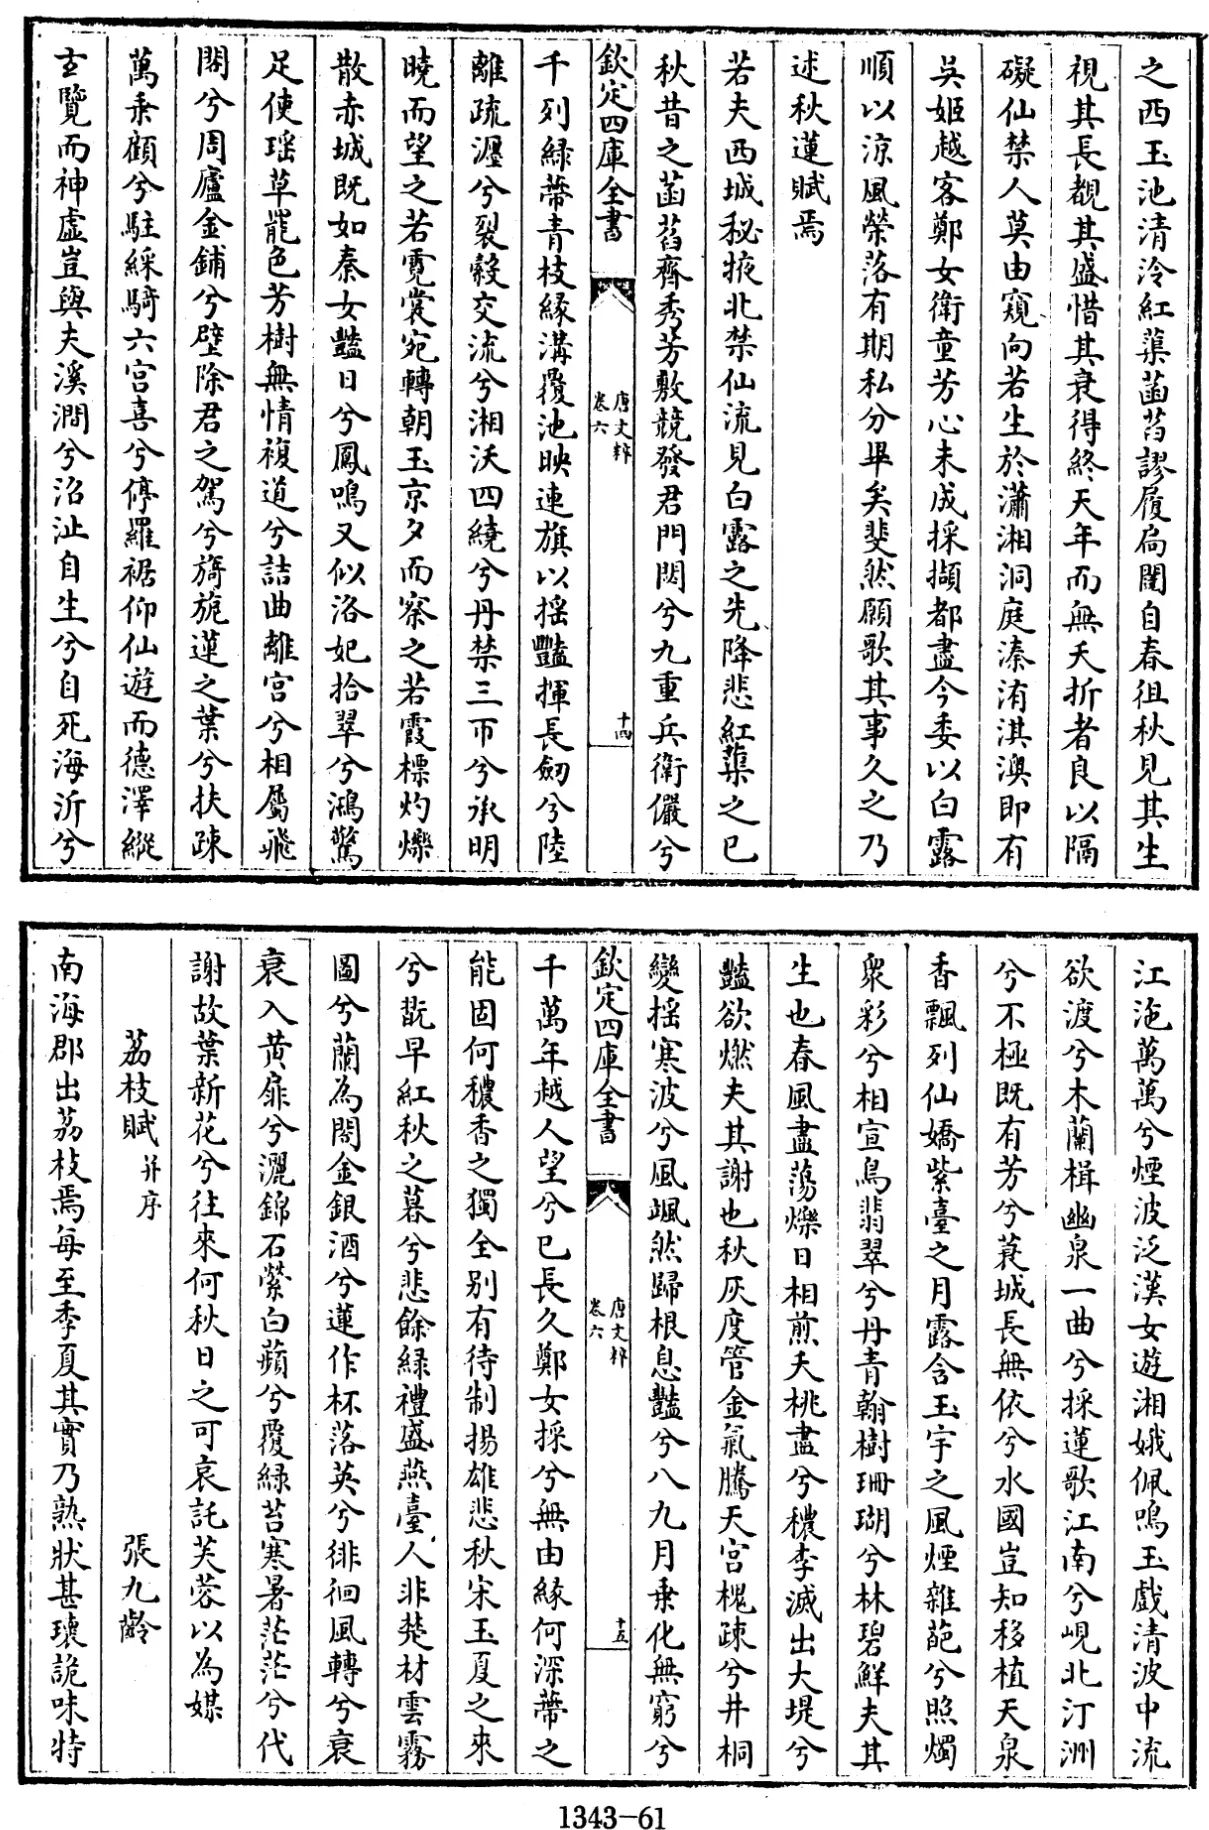 之西玉池清泠紅蕖菡萏謬履扃闥自春徂秋見其生
視其長覩其盛惜其衰得終天年而無夭折者良以隔
礙仙禁人莫由窺向若生於瀟湘洞庭溱洧淇澳即有
吳姬越客鄭女衛童芳心未成採擷都盡今委以白露
順以涼風榮落有期私分畢矣斐然願歌其事久之乃
述秋蓮賦焉
若夫西城秘掖北禁仙流見白露之先降悲紅蕖之已
秋昔之菡萏齊秀芳敷競發君門閟兮九重兵衛儼兮
欽定四庫全書
唐文粹
卷六
十四
千列綠蔕青枝緣溝覆池映連旗以搖豔揮長劒兮陸
離疏瀍兮裂縠交流兮湘沃四繞兮丹禁三帀兮承明
曉而望之若霓裳宛轉朝玉京夕而察之若霞標灼爍
散赤城既如秦女豔日兮鳳鳴又似洛妃拾翠兮鴻驚
足使瑤草罷色芳樹無情複道兮詰曲離宮兮相屬飛
閣兮周廬金鋪兮壁除君之駕兮旖旎蓮之葉兮扶疎
萬乘顧兮駐綵騎六宮喜兮停羅裾仰仙遊而德澤縱
玄覽而神虛豈與夫溪澗兮沼沚自生兮自死海沂兮
江沲萬萬兮煙波泛漢女遊湘娥佩鳴玉戲清波中流
欲渡兮木蘭楫幽泉一曲兮採蓮歌江南兮峴北汀洲
兮不極既有芳兮莪城長無依兮水國豈知移植天泉
香飄列仙嬌紫臺之月露含玉宇之風煙雜葩兮照燭
衆彩兮相宣鳥翡翠兮丹青翰樹珊瑚兮林碧鮮夫其
生也春風盡蕩爍日相煎夭桃盡兮穠李滅出大堤兮
豔欲燃夫其謝也秋灰度管金氣騰天宮槐疎兮井桐
變搖寒波兮風颯然歸根息豔兮八九月乗化無窮兮
欽定四庫全書
唐文粹
卷六
十五
千萬年越人望兮已長久鄭女採兮無由緣何深蔕之
能固何穠香之獨全别有待制揚雄悲秋宋玉夏之來
兮翫早紅秋之暮兮悲餘綠禮盛燕臺人非楚材雲霧
圖兮蘭為閣金銀酒兮蓮作杯落英兮徘徊風轉兮衰
衰入黄扉兮灑錦石縈白蘋兮覆綠苔寒暑茫茫兮代
謝故葉新花兮往來何秋日之可哀託芙蓉以為媒
荔枝賦并序　張九齡
南海郡出荔枝焉每至季夏其實乃熟狀甚瓌詭味特
1343-61